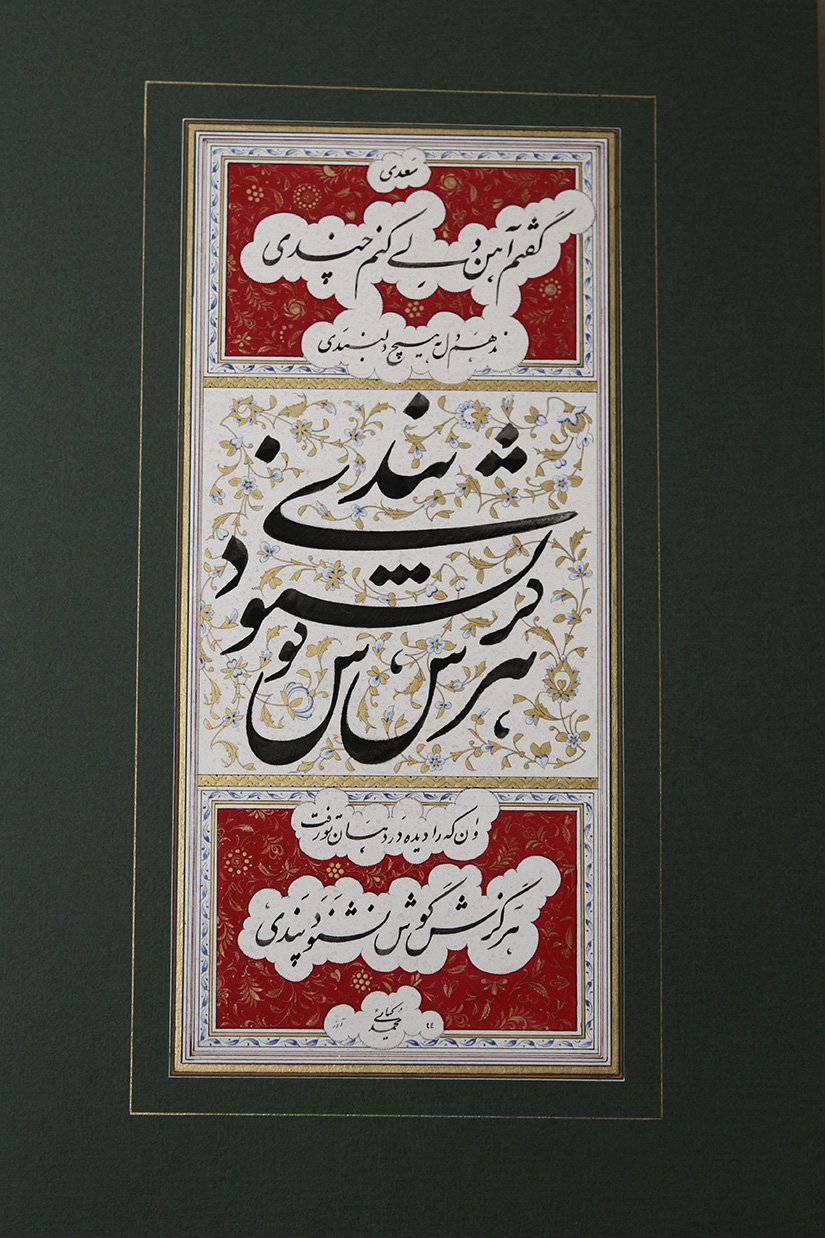 سعدی
گفتم آهن دلی کنم چندی
ندهم دل به هیچ دلبندی
هرگزش گوش نشنود پندی
وان که را دیده در دهان تو رفت
هرگزش گوش نشنود پندی
آذر